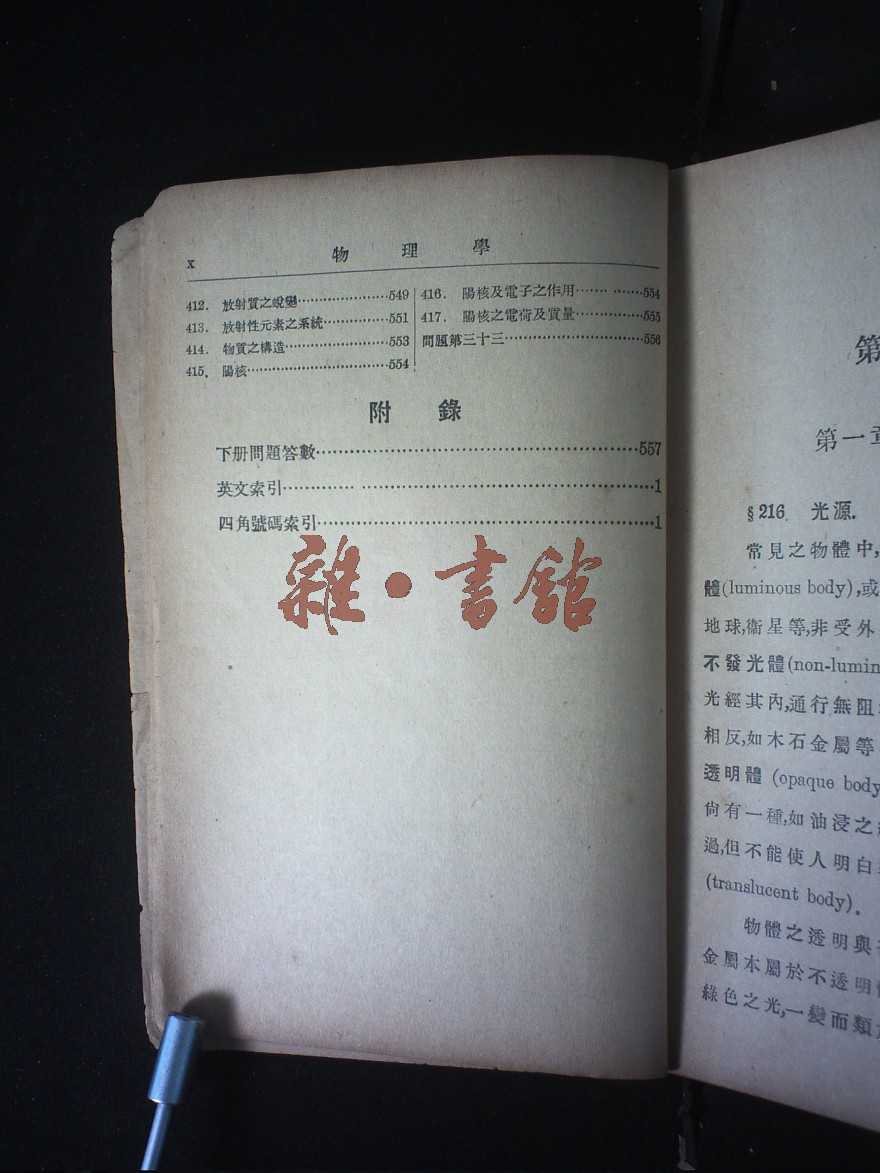 x 物理學
412. 放射質之蛻變……………………549
413. 放射性元素之系統………………551
414. 物質之構造…………………………553
415. 陽核……………………………………554
416. 陽核及電子之作用…… ………554
417. 陽核之電荷及質量………………555
問題第三十三……………………………556
附錄
下册問題答數………………………………………………557
英文索引………… …………………………………………1
四角號碼索引…………………………………………………1
雜·書館
第
第一章
§216. 光源.
常見之物體中,
體(luminous body),或
地球,衞星等,非受外
不發光體(non-lumin
光經其內,通行無阻
相反,如木石金屬等
透明體 (opaque body
尙有一種,如油浸之
過,但不能使人明白
(translucent body).
物體之透明與
金屬本屬於不透明
綠色之光,一變而類